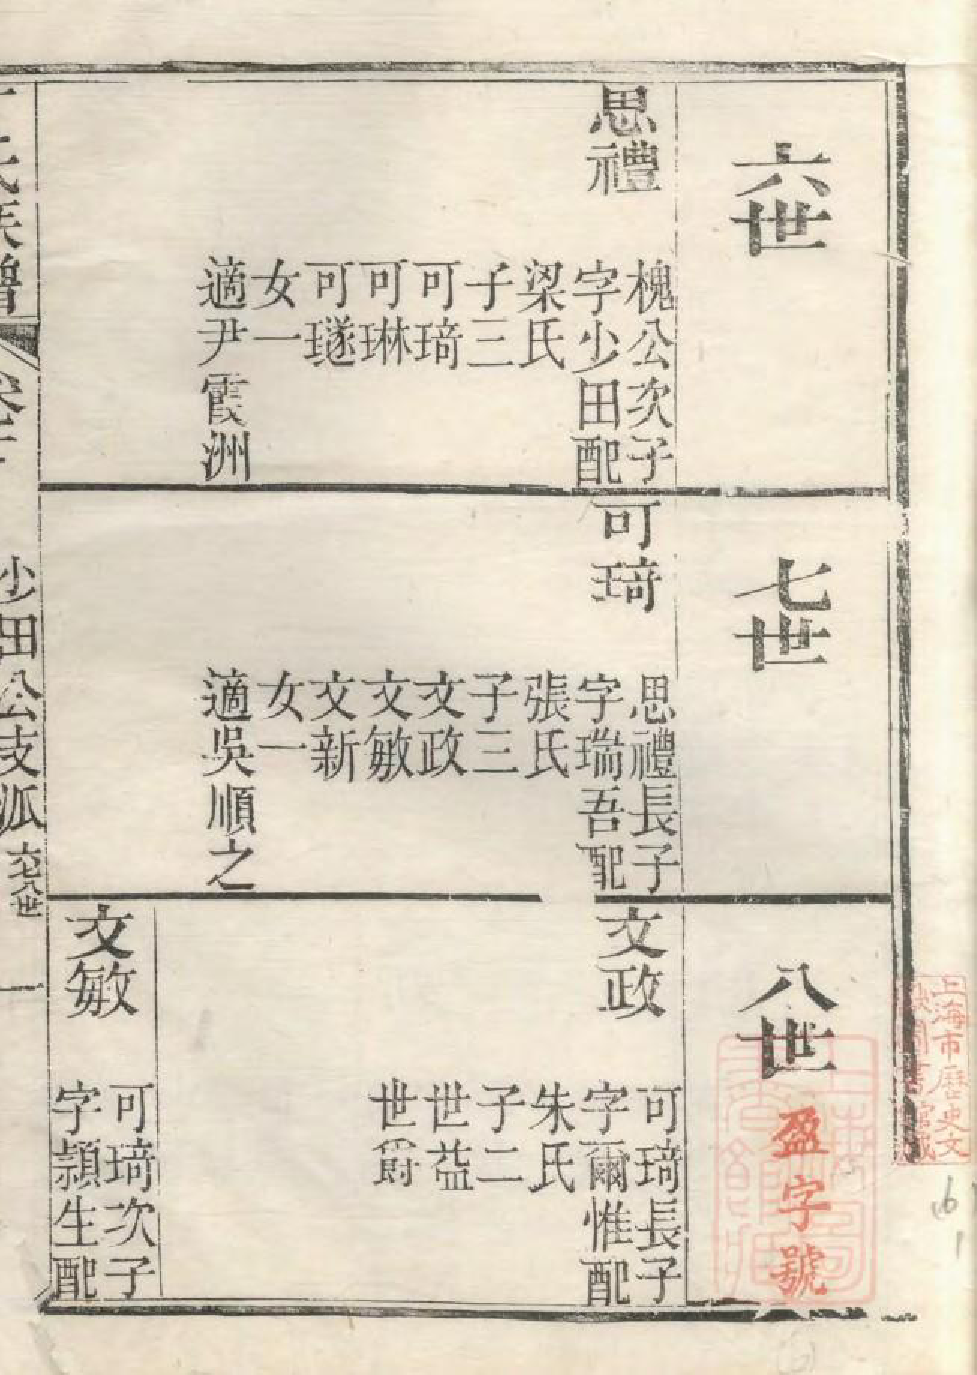 六世
思禮
槐公次子
字少田配
梁氏
子三
可琦
可琳
可璲
女一
適尹霞洲
七世
可琦
思禮長子
字瑞吾配
張氏
子三
文政
文敏
文新
女一
適吳順之
八世
文政
可琦長子
字爾惟配
朱氏
子二
世益
世爵
文敏
可琦次子
字頴生配
氏族譜
少田公支派
一
盈字號
上海市歷史文
獻圖書館藏